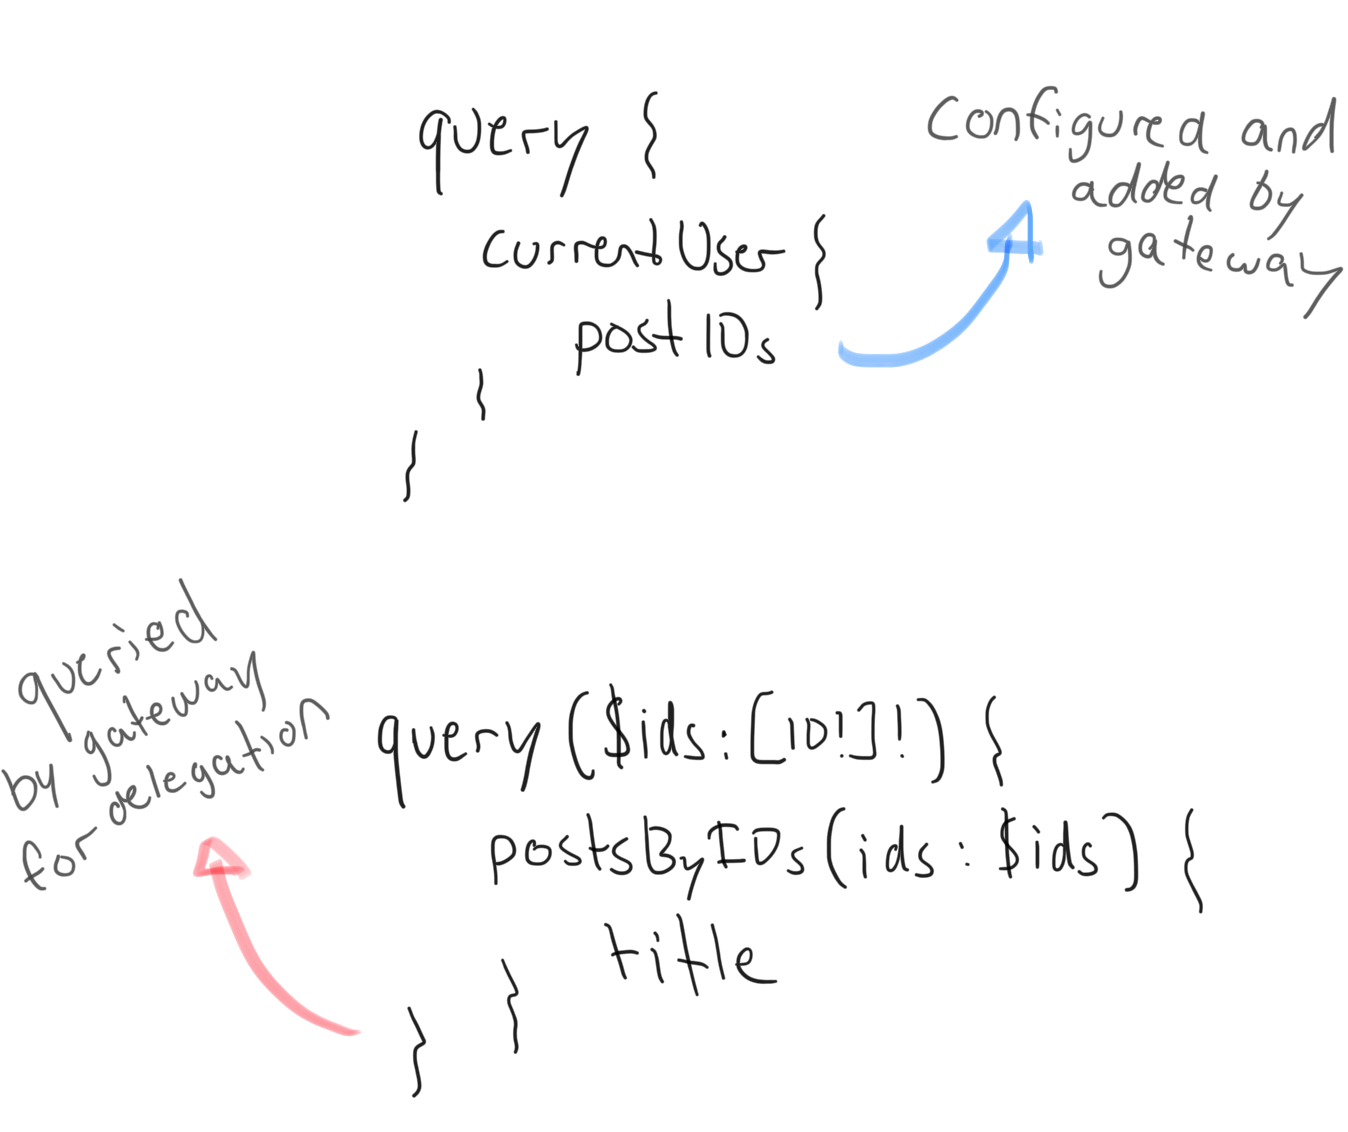 query {
currentUser {
postIDs
}
}
configured and
added by
gateway
queried
by gateway
for delegation
query ($ids: [ID!]!) {
postsByIDs (ids: $ids) {
title
}
}